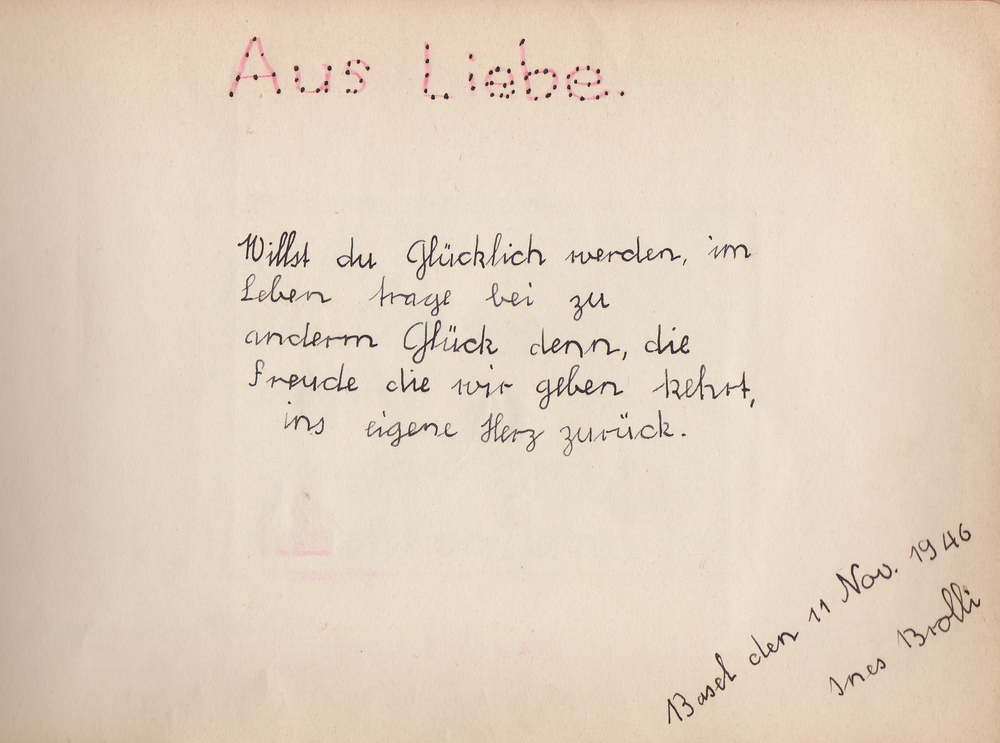 Aus Liebe.
Willst du Glücklich werden, im
Leben trage bei zu
anderm Glück denn, die
Freude die wir geben kehrt,
ins eigene Herz zurück.
Basel den 11 Nov. 1946
Ines Brolli